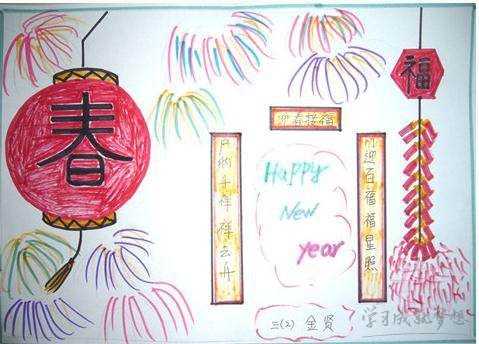 春
福
迎春接福
门迎百福福星照
户纳千祥祥云开
Happy
New
year
三(2) 金贤
学习成就梦想